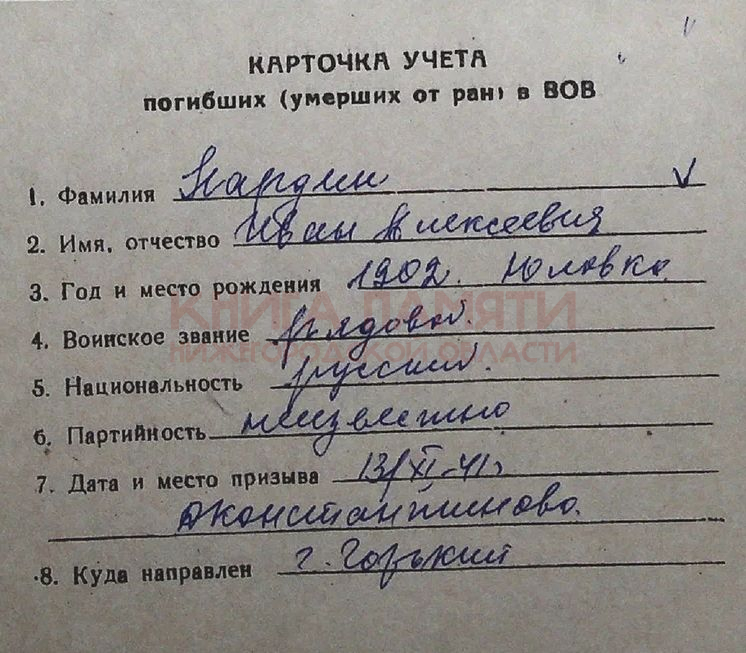 КАРТОЧКА УЧЕТА
погибших (умерших от ран) в ВОВ
1. Фамилия Нардин
2. Имя, отчество Иван Алексеевич
3. Год и место рождения 1902. Юловка
КНИГА ПАМЯТИ
4. Воинское звание рядовой.
НИЖЕГОРОДСКОЙ ОБЛАСТИ
5. Национальность русский.
6. Партийность неизвестно
7. Дата и место призыва 13/XI-41г
Дконстантиново.
8. Куда направлен г. Горький